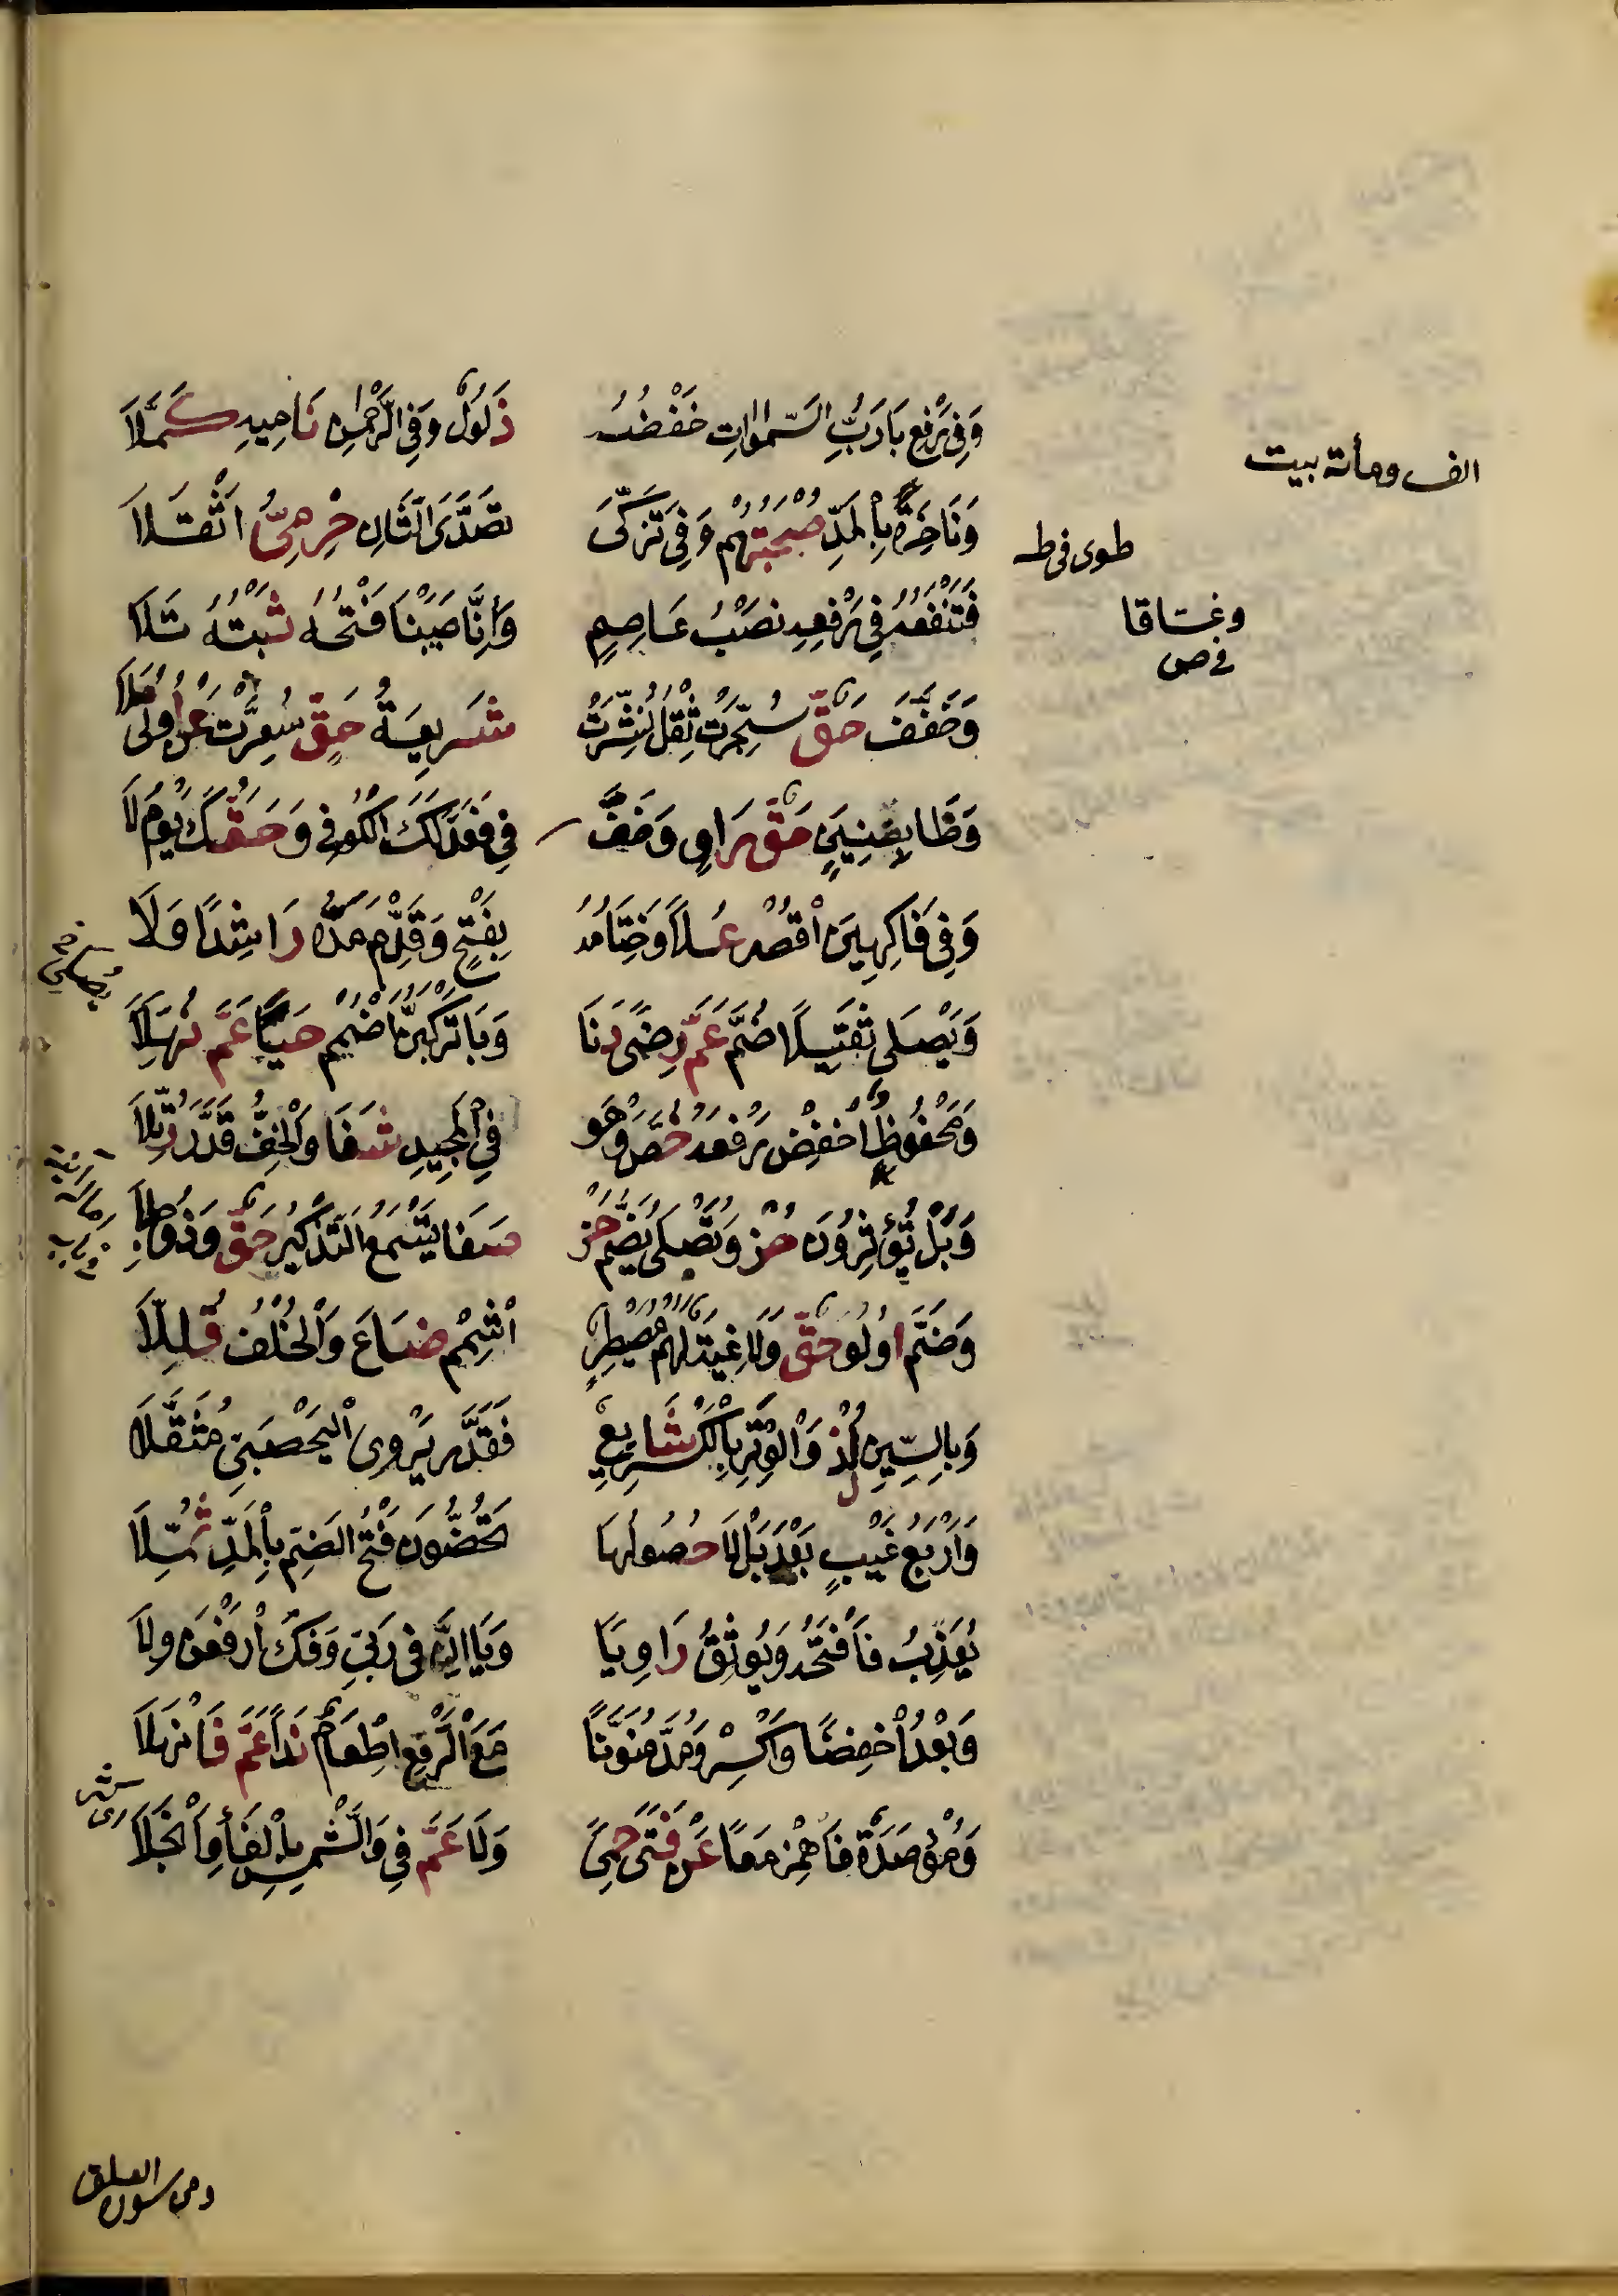 وَفِي رَفْعِ بَا رَبُّ السَّمٰوَاتِ خَفْضُهُ ذَلُولٌ وَفِي الرَّحْمٰنِ نَامِيهِ كَمَّلَا
الف ومأته بيت
وَنَاخِرَةً بِالْمَدِّ صُحْبَتُهُمْ وَفِي تَزَكَّى تَصَدَّى الثَّانِ حِرْمِيٌّ اثْقَلَا
طوى فى طه
فَتَنْفَعُهُ فِي رَفْعِهِ نَصْبُ عَاصِمٍ وَاَنَّا صَبَبْنَا فَتْحُهُ ثَبْتُهُ تَلَا
وغساقا
فى ص
وَخَفَّفَ حَقٌّ سُجِّرَتْ ثِقْلُ نُشِّرَتْ شَرِيعَةُ حَقٍّ سُعِّرَتْ عَنْ اُولِى مَلَا
وَظَا بِضَنِينٍ حَقُّ رَاوٍ وَخَفَّ فِي فَعَدَّلَكَ الْكُوفِي وَحَقُّكَ يَوْمُ لَا
وَفِي فَاكِهِينَ اقْصُرْ عُلًا وَخِتَامُهُ بِفَتْحٍ وَقَدِّمْ مَدَّهُ رَاشِدًا وَلَا
وَيُصَلَّى ثَقِيلًا ضُمَّ عَمَّ رِضًى دَنَا وَبَا تَرْكَبُنَّ اضْمُمْ حَيًا عَمَّ نُهَّلَا
وَمَحْفُوظٌ اخْفِضْ رَفْعَهُ خُصَّ وَهْوَ فِي الْمَجِيدِ شَفَا وَالْخِفُّ قَدَّرَ رُتِّلَا
وَبَلْ تُؤْثِرُونَ حُزْ وَتُصْلَى يُضَمُّ حُزْ صَفَا يَسْمَعُ التَّذْكِيرُ حَقٌّ وَذُو جِلَا
وَضَمَّ اُولُو حَقٍّ وَلَاغِيَةٌ لَهُمْ مُصَيْطِرٍ اشْمِمْ ضَاعَ وَالْخُلْفُ قُلِّلَا
وَبِالسِّينِ لُذْ وَالْوَتْرِ بِالْكَسْرِ شَايِعٌ فَقَدَّرَ يَرْوِى الْيَحْصَبِيُّ مُثَقَّلَا
وَاَرْبَعُ غَيْبٍ بَعْدَ بَلْ لَا حُصُولُهَا تَحُضُّونَ فَتْحُ الضَّمِّ بِالْمَدِّ ثُمِّلَا
يُعَذِّبُ فَافْتَحْهُ وَيُوثِقُ رَاوِيًا وَيَا اِنِ فِي رَبِّي وَفَكُّ ارْفَعَنْ وِلَا
وَبَعْدُ اخْفِضًا وَاكْسِرْ وَمُدَّ مُنَوِّنًا مَعَ الرَّفْعِ اِطْعَامٌ نَدًا عَمَّ فَانْهَلَا
وَمُؤْصَدَةٌ فَاهْمِزْ مَعًا عَنْ فَتًى حِمًى وَلَا عَمَّ فِي وَالشَّمْسِ بِالْفَاءِ وَانْجَلَا
ومن سورة العلق